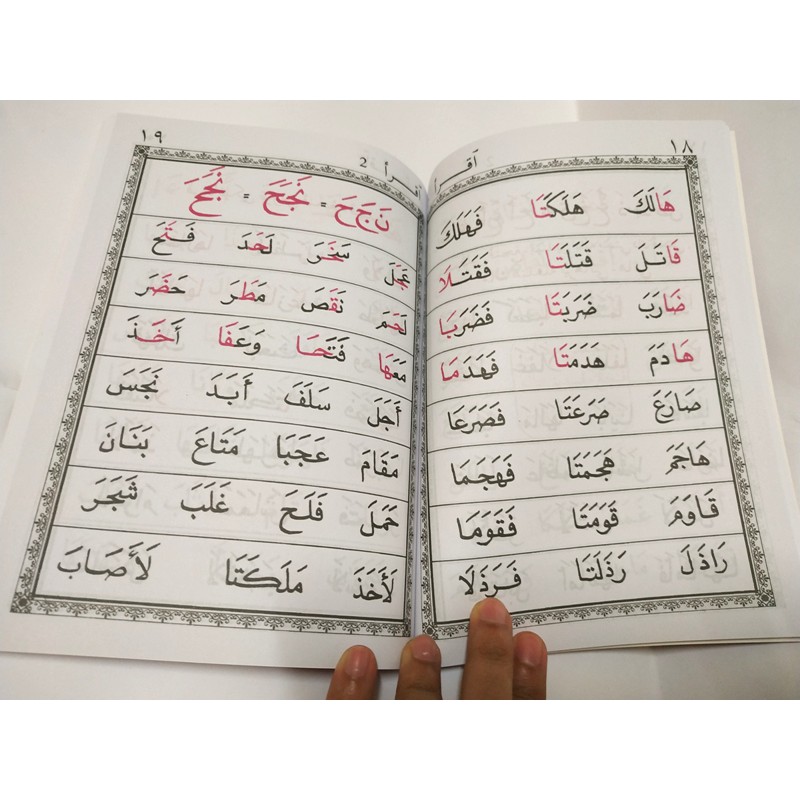 ١٨ اَقْرَأْ
هَالَكَ هَلَكَتَا فَهَلَكَ
قَاتَلَ قَتَلَتَا فَقَتَلَا
ضَارَبَ ضَرَبَتَا فَضَرَبَا
هَادَمَ هَدَمَتَا فَهَدَمَا
صَارَعَ صَرَعَتَا فَصَرَعَا
هَاجَمَ هَجَمَتَا فَهَجَمَا
قَاوَمَ قَوَمَتَا فَقَوَمَا
رَاذَلَ رَذَلَتَا فَرَذَلَا
اَقْرَأْ 2 ١٩
نَ جَ حَ = نَجَحَ = نَجَحَ
عَجَلَ سَخَرَ لَحَدَ فَتَحَ
لَحَمَ نَقَصَ مَطَرَ حَضَرَ
مَعَهَا فَتَحَا وَعَفَا أَخَذَ
أَجَلَ سَلَفَ أَبَدَ نَجَسَ
مَقَامَ عَجَبَا مَتَاعَ بَنَانَ
حَمَلَ فَلَحَ غَلَبَ شَجَرَ
لَأَخَذَ مَلَكَتَا لَأَصَابَ